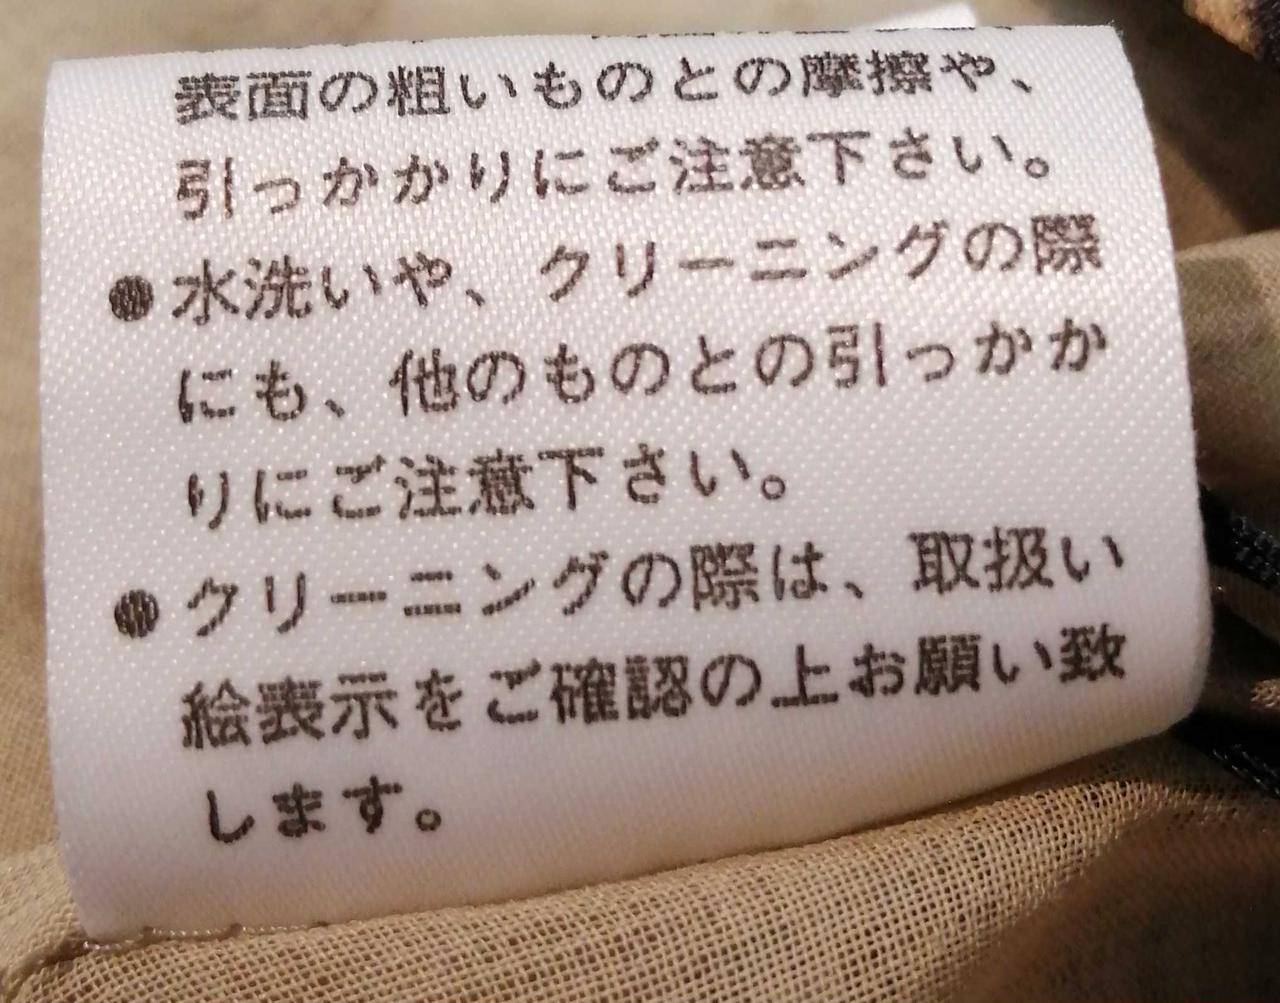 表面の粗いものとの摩擦や、
引っかかりにご注意下さい。
●水洗いや、クリーニングの際
にも、他のものとの引っかか
りにご注意下さい。
●クリーニングの際は、取扱い
絵表示をご確認の上お願い致
します。